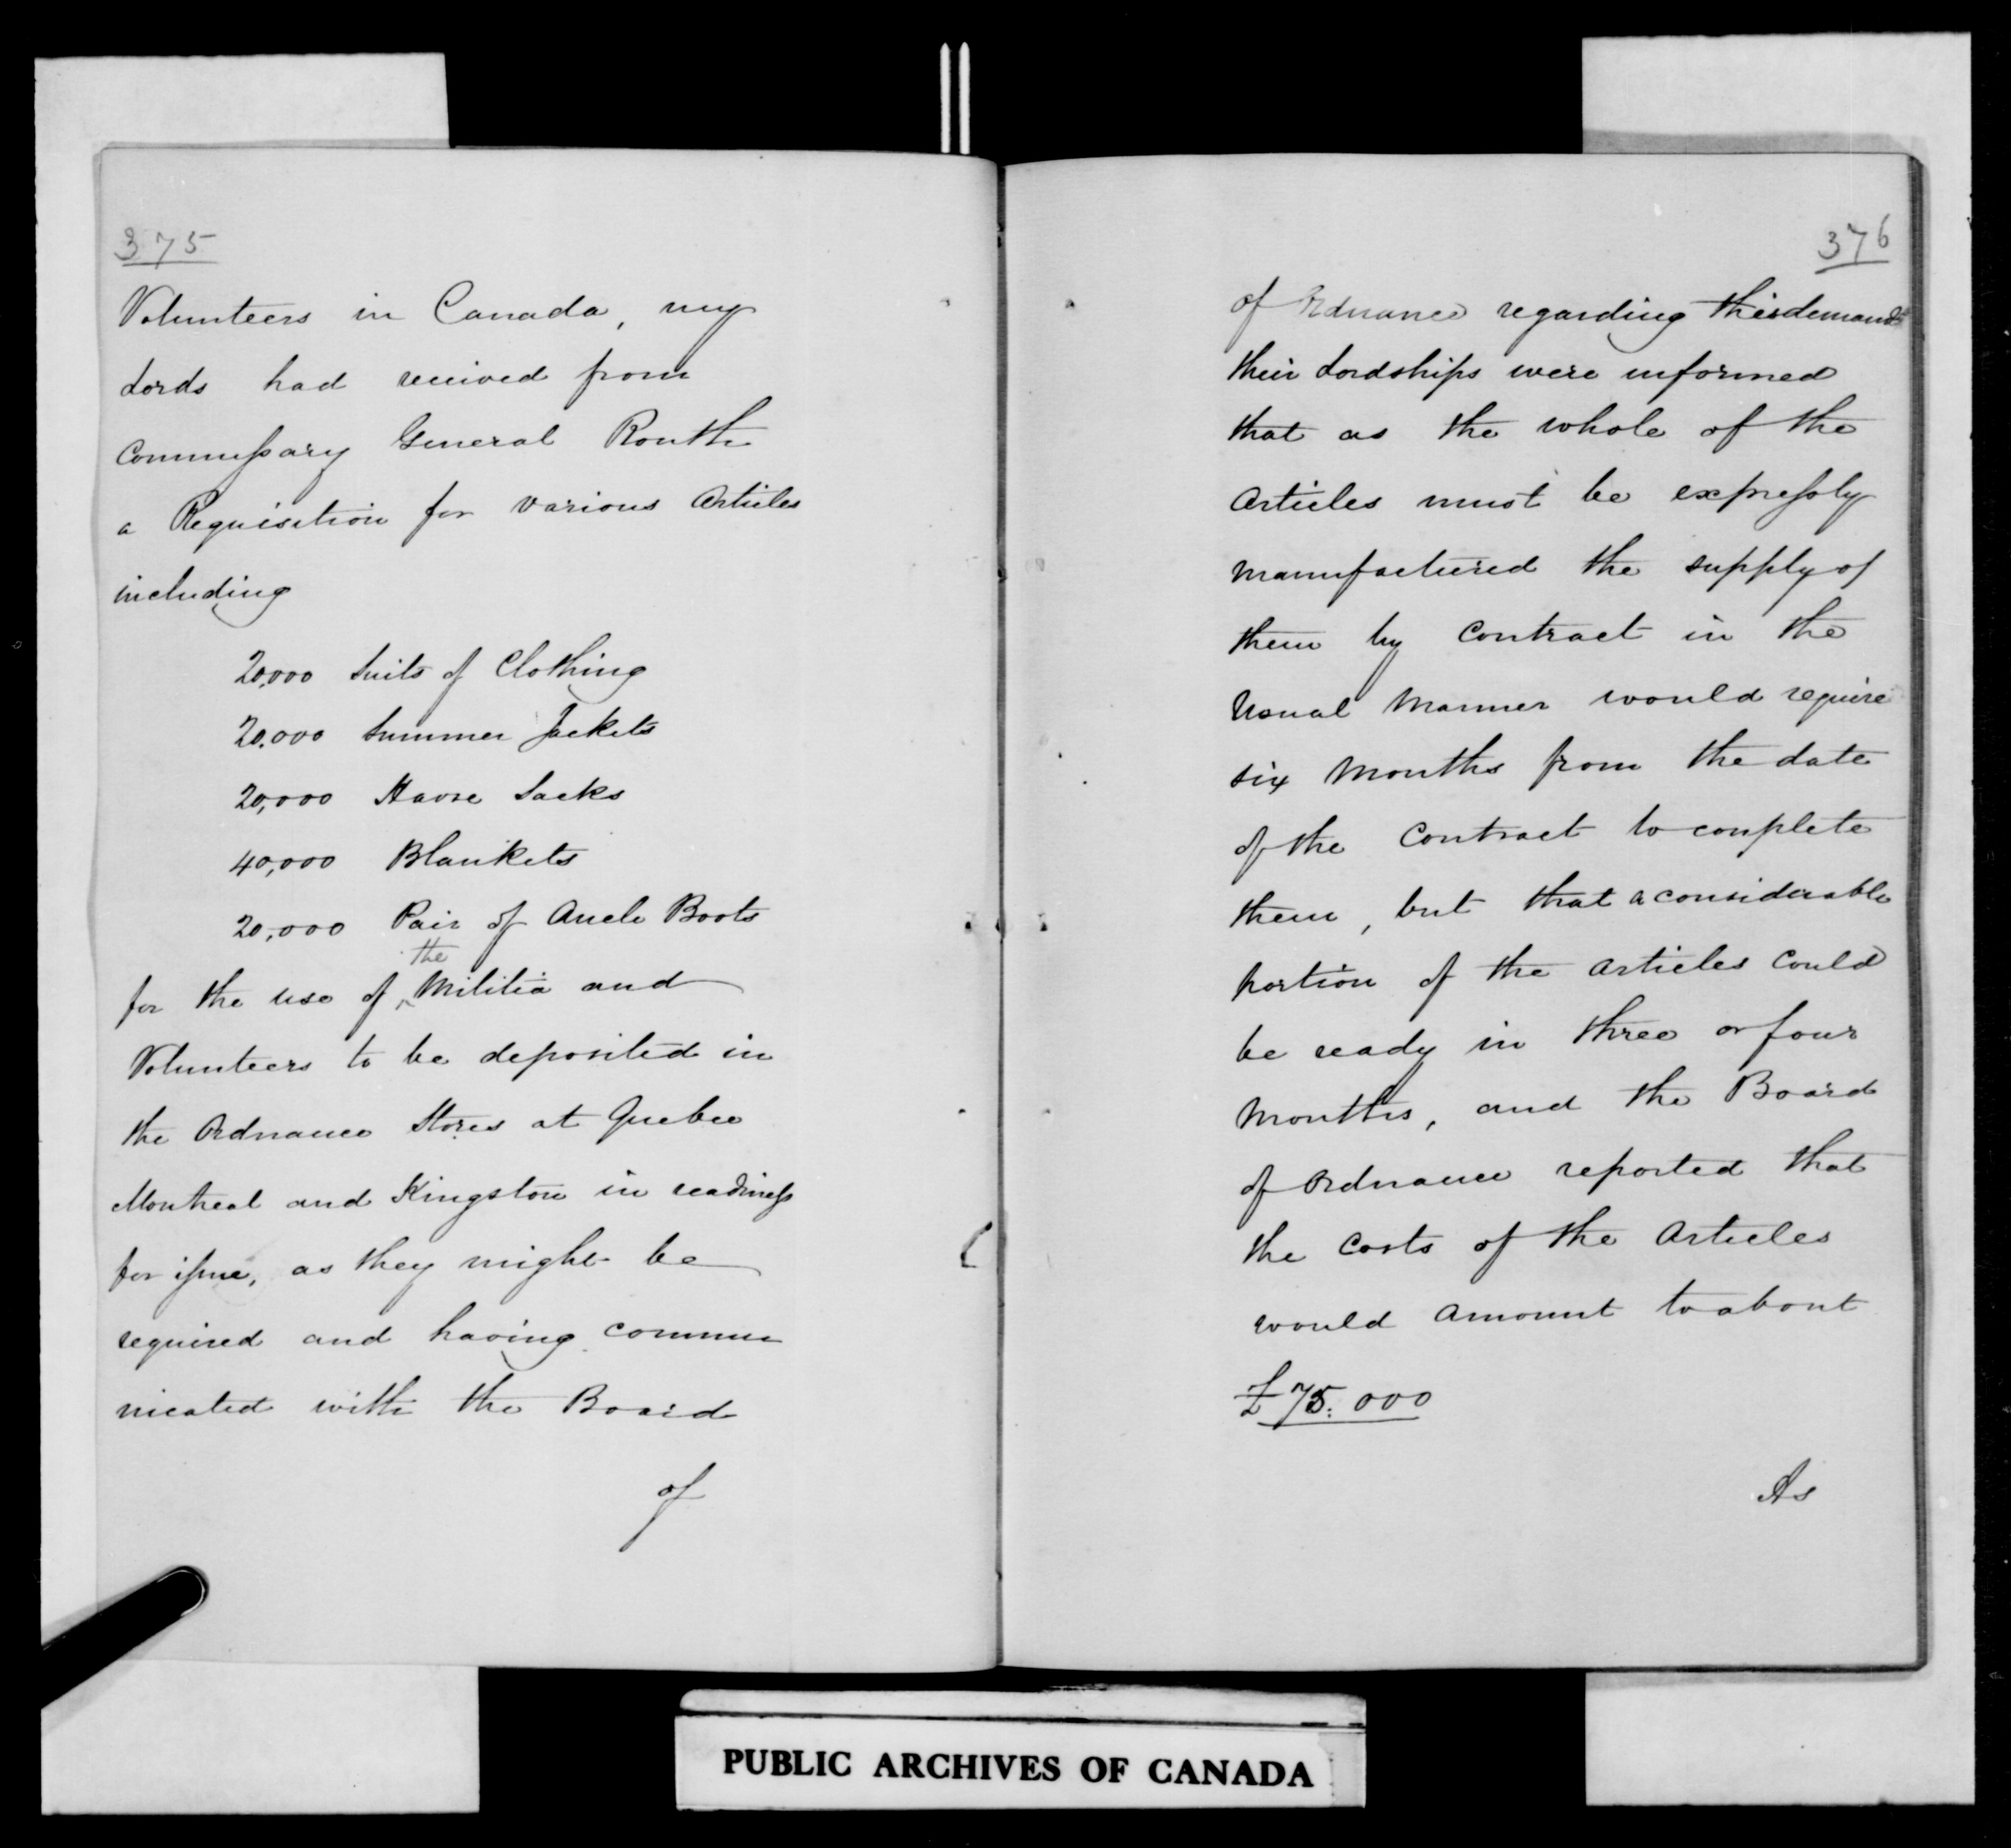 375
Volunteers in Canada, my
Lords had received from
Commissary General Routh
a Requisition for various Articles
including
20,000 Suits of Clothing
20,000 Summer Jackets
20,000 Havre Sacks
40,000 Blankets
20,000 Pair of Ancle Boots
the
for the use of ^ Militia and
Volunteers to be deposited in
the Ordnance Stores at Quebec
Montreal and Kingston in readiness
for issue, as they might be
required and having commu
nicated with the Board
of
376
of Ordnance regarding this demand
their Lordships were informed
that as the whole of the
Articles must be expressly
manufactured the supply of
them by Contract in the
Usual Manner would require
six Months from the date
of the Contract to complete
them, but that a considerable
portion of the Articles Could
be ready in three or four
Months, and the Board
of Ordnance reported that
the Costs of the Articles
would Amount to about
£75.000
As
PUBLIC ARCHIVES OF CANADA